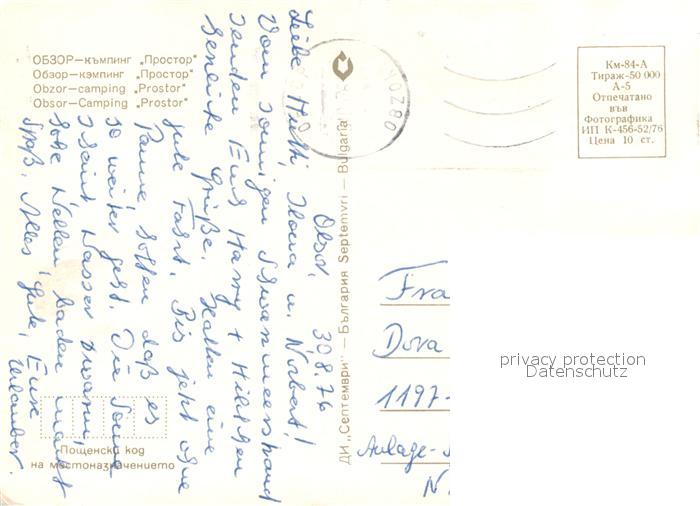 ОБЗОР—къмпинг „Простор“
Обзор—кэмпинг „Простор“
Obzor—camping „Prostor“
Obsor—Camping „Prostor“
Obsor, 30.8.76
Liebe Hietti, Ilona u. Norbert!
Vom sonnigen Schwarzmeerstrand
senden Euch Harry +
herzliche Grüße. Hatten eine
gute Fahrt. Bis jetzt ohne
Panne, hoffen daß es
so weiter geht. Die Sonne
scheint, Wasser warm,
hohe Wellen, baden macht
Spaß. Alles Gute, Eure
ДИ „Септември“ — България Septemvri — Bulgaria
OBZOR
Км-84-А
Тираж-50 000
А-5
Отпечатано
във
Фотографика
ИП К-456-52/76
Цена 10 ст.
Fra
Dora
1197-
Anlage-
N.
privacy protection
Datenschutz
Пощенски код
на местоназначението